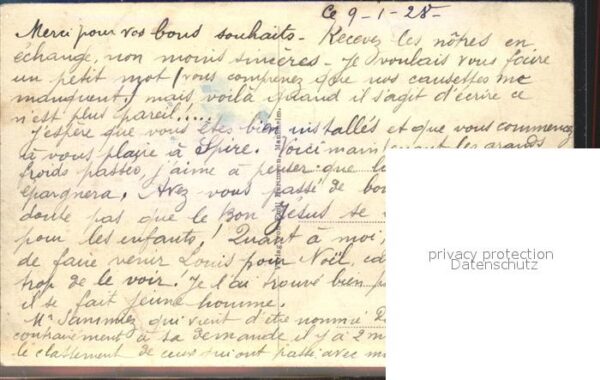 Ce 9-1-28-
Merci pour vos bons souhaits - Recevez les nôtres en
échange, non moins sincères - Je voulais vous faire
un petit mot (vous comprenez que nos causettes me
manquent) mais voilà quand il s'agit d'écrire ce
n'est plus pareil.....
J'espère que vous êtes bien installés et que vous commencez
à vous plaire à Spire. Voici maintenant les grands
froids passés, j'aime à penser que
épargnera. Avez vous passé de
doute pas que le Bon Jésus se
pour les enfants! Quant à moi,
de faire venir Louis pour Noël,
trop de le voir! Je l'ai trouvé bien
il se fait jeune homme.
Mr qui vient d'être nommé
contrairement à sa demande il y a 2
le classement de ceux qui ont passé avec
privacy protection
Datenschutz